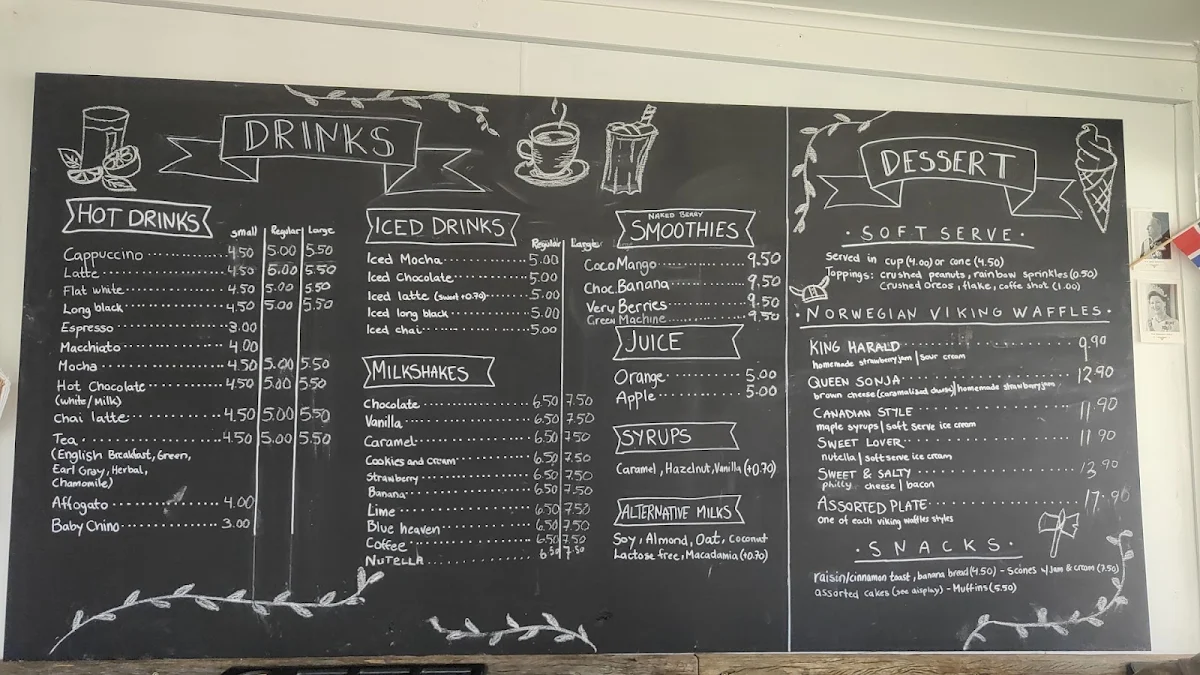 DRINKS
HOT DRINKS
small Regular Large
Cappuccino 4.50 5.00 5.50
Latte 4.50 5.00 5.50
Flat white 4.50 5.00 5.50
Long black 4.50 5.00 5.50
Espresso 3.00
Macchiato 4.00
Mocha 4.50 5.00 5.50
Hot Chocolate 4.50 5.00 5.50
(white/Milk)
Chai latte 4.50 5.00 5.50
Tea 4.50 5.00 5.50
(English Breakfast, Green,
Earl Gray, Herbal,
Chamomile)
Affogato 4.00
Baby Chino 3.00
ICED DRINKS
Regular Large
Iced Mocha 5.00
Iced Chocolate 5.00
Iced latte (sweet +0.70) 5.00
Iced long black 5.00
Iced chai 5.00
MILKSHAKES
Chocolate 6.50 7.50
Vanilla 6.50 7.50
Caramel 6.50 7.50
Cookies and cream 6.50 7.50
Strawberry 6.50 7.50
Banana 6.50 7.50
Lime 6.50 7.50
Blue heaven 6.50 7.50
Coffee 6.50 7.50
NUTELLA 6.50 7.50
NAKED BERRY
SMOOTHIES
Coco Mango 9.50
Choc Banana 9.50
Very Berries 9.50
Green Machine 9.50
JUICE
Orange 5.00
Apple 5.00
SYRUPS
Caramel, Hazelnut, Vanilla (+0.70)
ALTERNATIVE MILKS
Soy, Almond, Oat, Coconut
Lactose free, Macadamia (+0.70)
DESSERT
· SOFT SERVE ·
Served in cup (4.00) or cone (4.50)
Toppings: crushed peanuts, rainbow sprinkles (0.50)
crushed oreos, flake, coffe shot (1.00)
· NORWEGIAN VIKING WAFFLES ·
KING HARALD 9.90
homemade strawberry jam | sour cream
QUEEN SONJA 12.90
brown cheese (caramalised cheese) | homemade strawberry jam
CANADIAN STYLE 11.90
maple syrups | soft serve ice cream
SWEET LOVER 11.90
nutella | soft serve ice cream
SWEET & SALTY 13.90
philly cheese | bacon
ASSORTED PLATE 17.90
one of each viking waffles styles
· SNACKS ·
raisin/cinnamon toast, banana bread (4.50) - Scones w/ Jam & cream (7.50)
assorted cakes (see display) - Muffins (5.50)